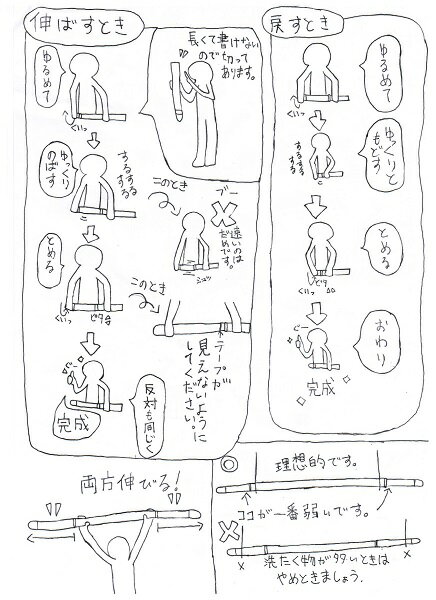 伸ばすとき
ゆるめて
くいっ
長くて書けない
ので切って
あります。
ゆっくり
のばす
するする
するする
このとき
ブー
速いのは
だめです。
とめる
くいっ
ピタッ
このとき
テープが
見えないように
してください。
ぐー
完成
反対も同じく
戻すとき
ゆるめて
くいっ
ゆっくりと
もどす
するする
するする
とめる
くいっ
ピタ
ぐー
おわり
完成
両方伸びる!
理想的です。
ココが一番弱いです。
洗たく物が多いときは
やめときましょう。